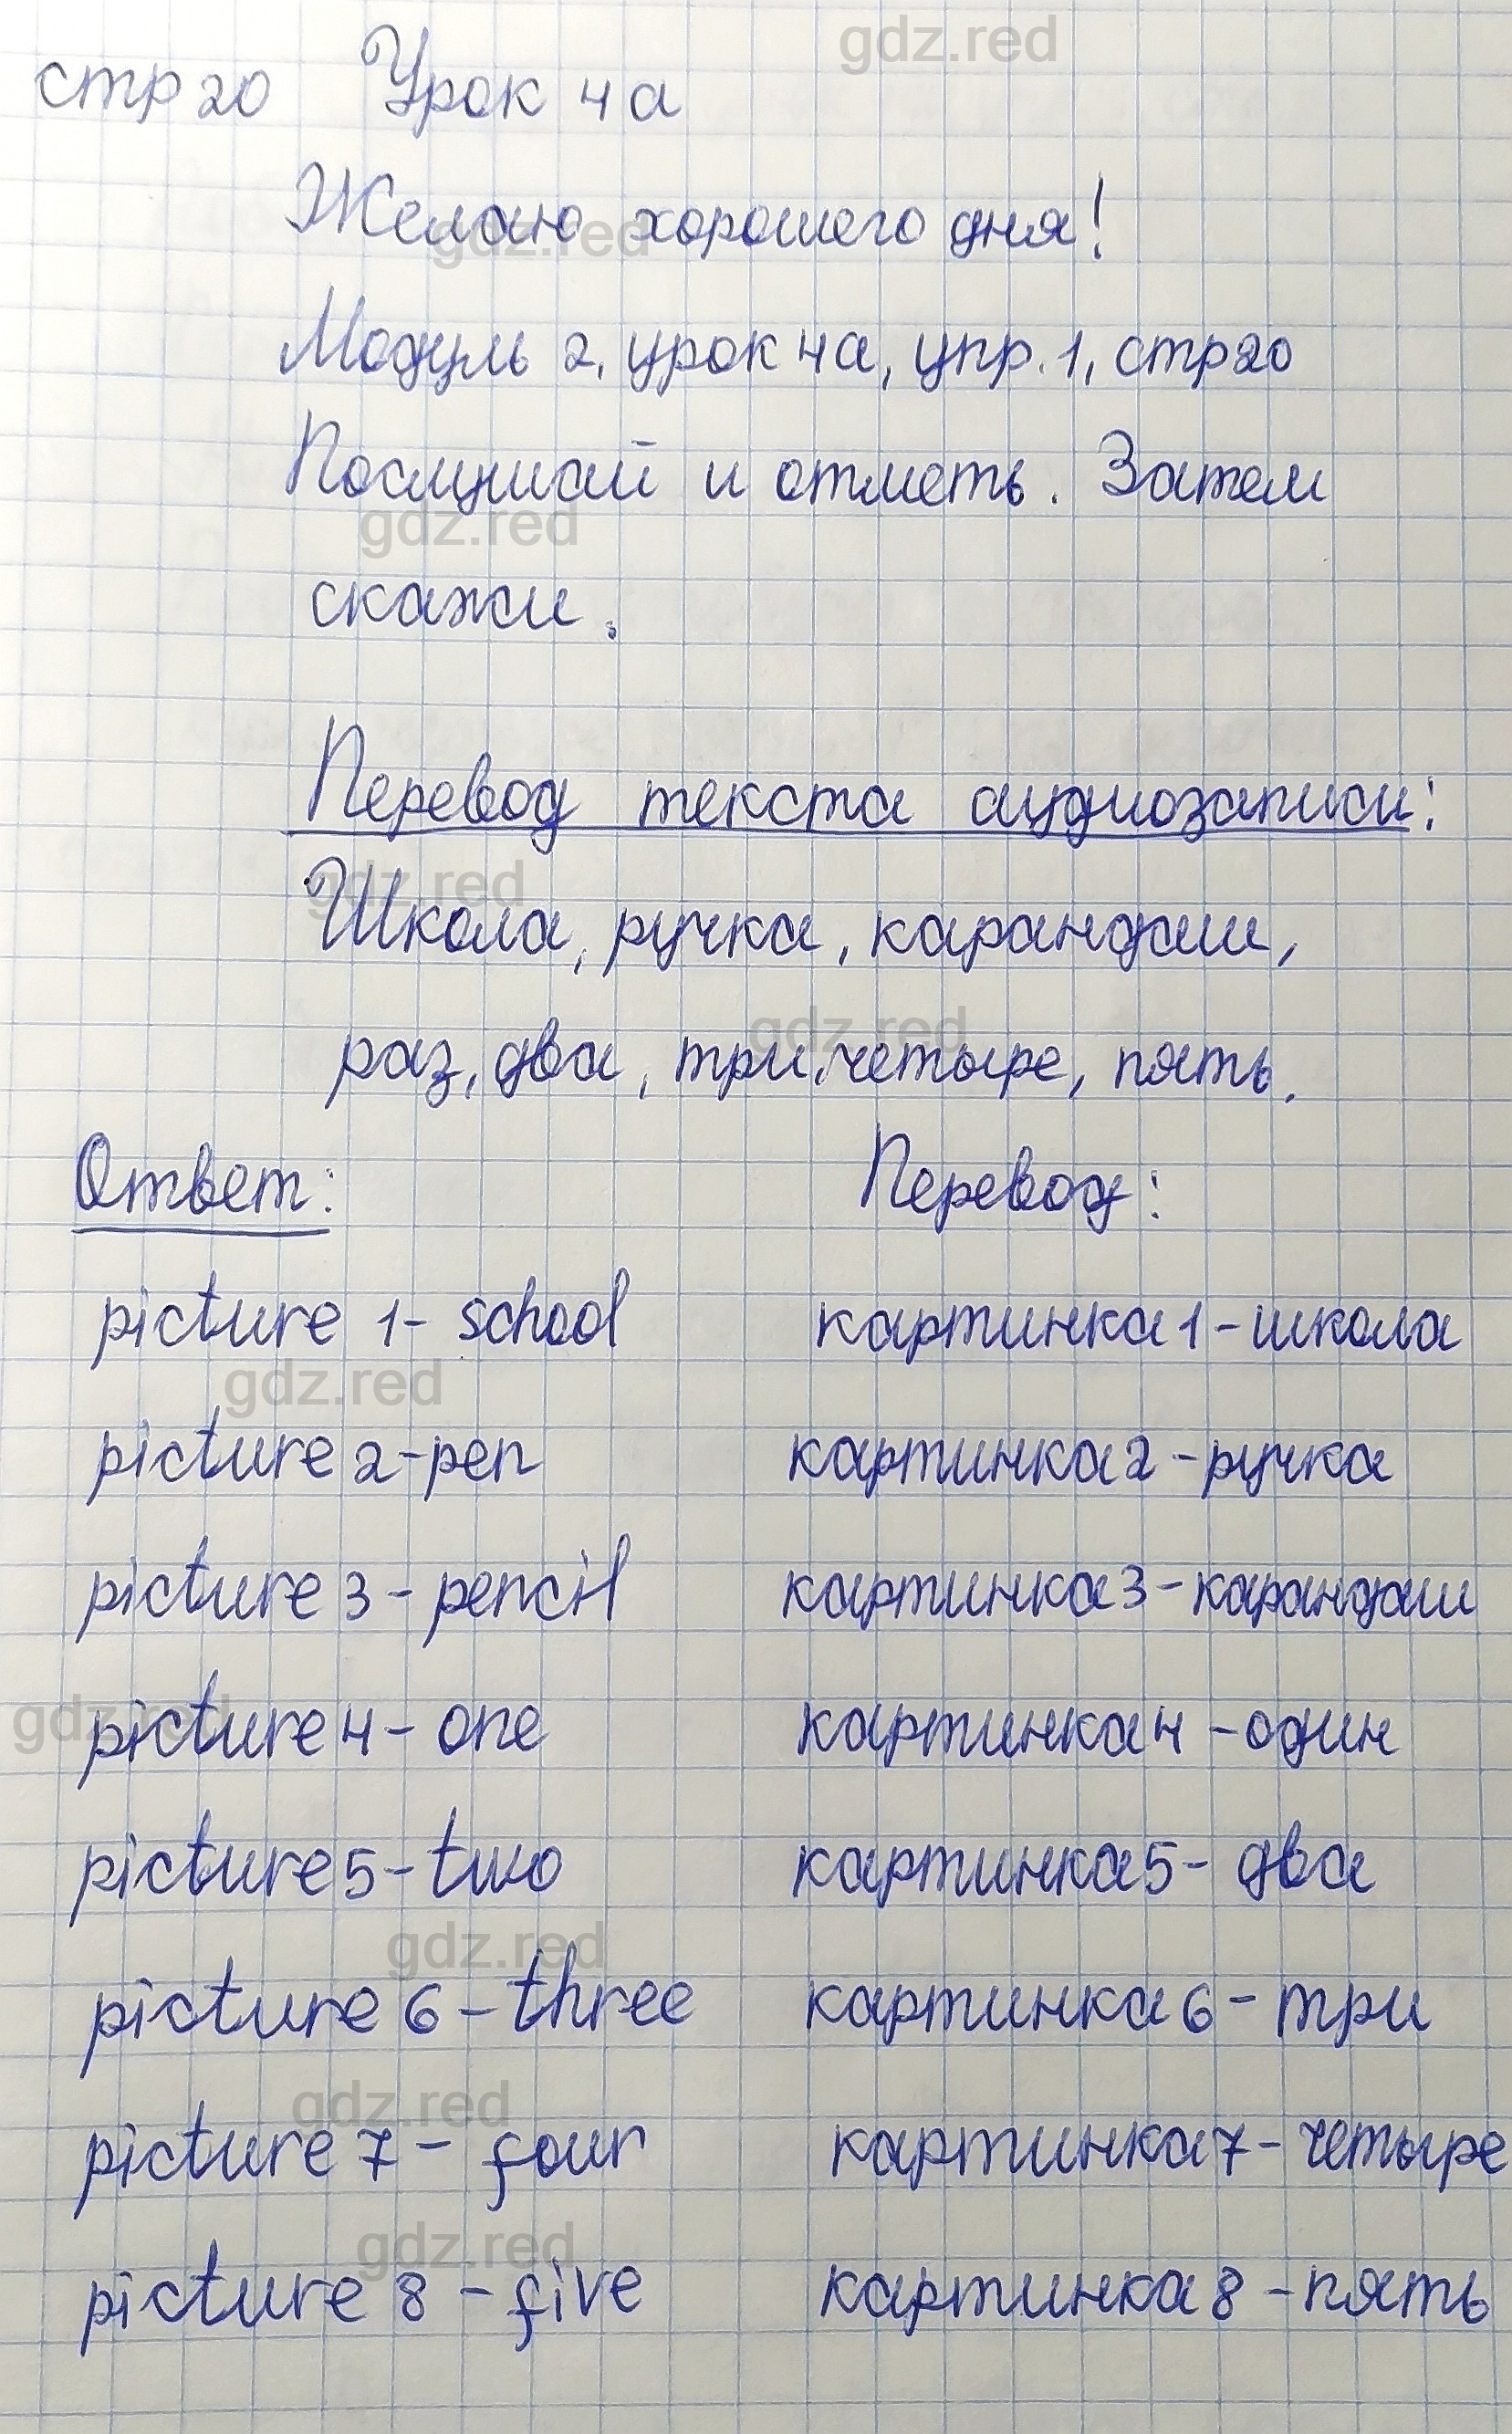 gdz.red
стр 20 Урок 4а
Желаю хорошего дня!
gdz.red
Модуль 2, урок 4а, упр. 1, стр 20
Послушай и отметь. Затем
gdz.red
скажи.
Перевод текста аудиозаписи:
gdz.red
Школа, ручка, карандаш,
gdz.red
раз, два, три, четыре, пять.
Ответ: Перевод:
picture 1 - school картинка 1 - школа
gdz.red
picture 2 - pen картинка 2 - ручка
picture 3 - pencil картинка 3 - карандаш
gdz.red
picture 4 - one картинка 4 - один
picture 5 - two картинка 5 - два
gdz.red
picture 6 - three картинка 6 - три
gdz.red
picture 7 - four картинка 7 - четыре
gdz.red
picture 8 - five картинка 8 - пять